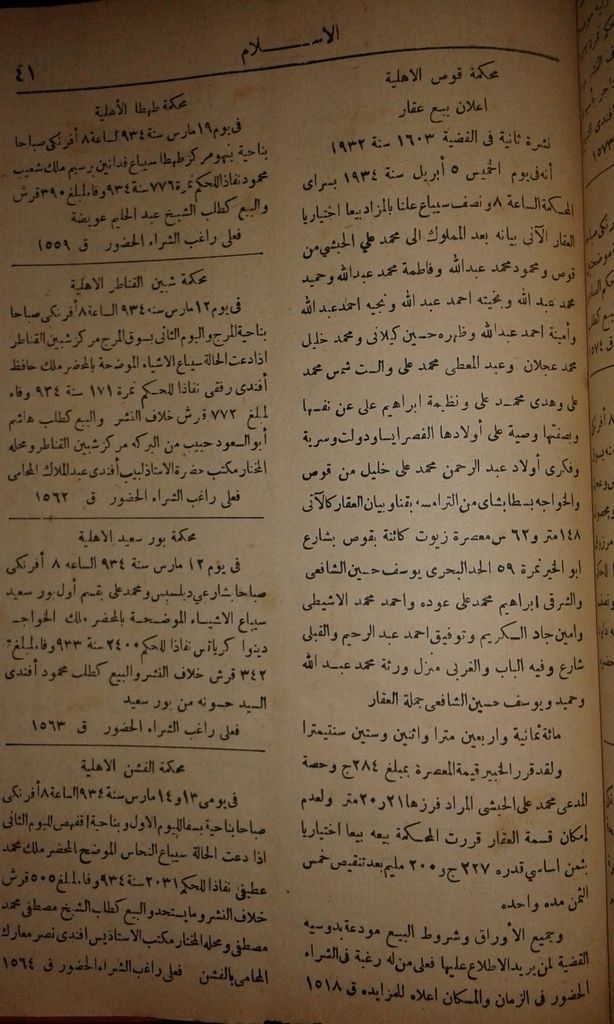 الاســلام
٤١
محكمة قوص الاهلية
اعلان بيع عقار
نشرة ثانية فى القضية ١٦٠٣ سنة ١٩٣٢
أنه فى يوم الخميس ٥ أبريل سنة ١٩٣٤ بسراى
المحكمة الساعة ٨ ونصف سيباع علنا بالمزاد بيعا اختياريا
العقار الآتى بيانه بعد المملوك الى محمد علي الحبشي من
قوص ومحمود محمد عبدالله وفاطمة محمد عبدالله وحميد
محمد عبد الله وبخيته احمد عبد الله ونجيه احمد عبد الله
وأمينة احمد عبد الله وظهره حسين كيلانى ومحمد خليل
محمد عجلان وعبد المعطى محمد على والست شمس محمد
على وهدى محمد على ونظيمة ابراهيم على عن نفسها
وبصفتها وصية على أولادها القصر ايسا ودولت وسرية
وفكرى أولاد عبد الرحمن محمد على خليل من قوص
والخواجه بسطا بشاى من التراسه بقنا وبيان العقار كالآتى
١٤٨ متر و ٦٢ س معصرة زيوت كائنة بقوص بشارع
ابو الخير نمرة ٥٩ الحد البحرى يوسف حسين الشافعى
والشرقى ابراهيم محمد على عوده واحمد محمد الاشيطى
وامين جاد الكريم وتوفيق احمد عبد الرحيم والقبلى
شارع وفيه الباب والغربى منزل ورثة محمد عبد الله
وحميد ويوسف حسين الشافعى جملة العقار
مائة ثمانية واربعين مترا واثنين وستين سنتيمترا
ولقد قرر الخبير قيمة المعصرة بمبلغ ٢٨٤ ج وحصة
المدعى محمد على الحبشى المراد فرزها ٢١ر٢٠ متر ولعدم
إمكان قسمة العقار قررت المحكمة بيعه بيعا اختياريا
بثمن اساسي قدره ٢٢٧ ج و ٢٠٠ مليم بعد تنقيص خمس
الثمن مده واحده
وجميع الأوراق وشروط البيع مودعة بدوسيه
القضية لمن يريد الاطلاع عليها فعلى من له رغبة فى الشراء
الحضور فى الزمان والمكان اعلاه للمزايده ق ١٥١٨
محكمة طهطا الأهلية
فى يوم ١٩ مارس سنة ٩٣٤ الساعة ٨ أفرنكى صباحا
بناحية بنهو مركز طهطا سيباع فدانين برسيم ملك شعيب
محمود نفاذا للحكم نمرة ٧٧٦ سنة ٩٣٤ وفاء لمبلغ ٣٩٠ قرش
والبيع كطلب الشيخ عبد الحليم عويضة
فعلى راغب الشراء الحضور ق ١٥٥٩
محكمة شبين القناطر الاهلية
فى يوم ١٢ مارس سنة ٩٣٤ الساعة ٨ أفرنكى صباحا
بناحية المرج واليوم الثانى بسوق المرج مركز شبين القناطر
اذا دعت الحالة سيباع الاشياء الموضحة بالمحضر ملك حافظ
أفندى رفقى نفاذا للحكم نمرة ١٧١ سنة ٩٣٤ وفاء
لمبلغ ٧٧٢ قرش خلاف النشر والبيع كطلب هانم
أبو السعود حبيب من البركه مركز شبين القناطر ومحله
المختار مكتب حضرة الاستاذ لبيب أفندى عبد الملاك المحامى
فعلى راغب الشراء الحضور ق ١٥٦٢
محكمة بور سعيد الاهلية
فى يوم ١٢ مارس سنة ٩٣٤ الساعه ٨ أفرنكى
صباحا بشارعي دبلسبس ومحمد على بقسم أول بور سعيد
سيباع الاشياء الموضحة بالمحضر ملك الخواجه
دينوا كرياتس نفاذا للحكم ٢٤٠٠ سنة ٩٣٣ وفاء لمبلغ
٣٤٢ قرش خلاف النشر والبيع كطلب محمود أفندى
السيد حسونه من بور سعيد
فعلى راغب الشراء الحضور ق ١٥٦٣
محكمة الفشن الاهلية
فى يومى ١٣ و ١٤ مارس سنة ٩٣٤ الساعة ٨ أفرنكى
صباحا بناحية بسفا اليوم الاول وبناحية اقفهص لليوم الثانى
اذا دعت الحالة سيباع النحاس الموضح بالمحضر ملك محمد
عطيفى نفاذا للحكم ٢٠٣١ سنة ٩٣٤ وفاء لمبلغ ٥٠٥ قرش
خلاف النشر وما يستجد والبيع كطلب الشيخ مصطفى محمد
مصطفى ومحله المختار مكتب الاستاذ يس افندى نصر معارك
المحامى بالفشن فعلى راغب الشراء الحضور ق ١٥٦٤